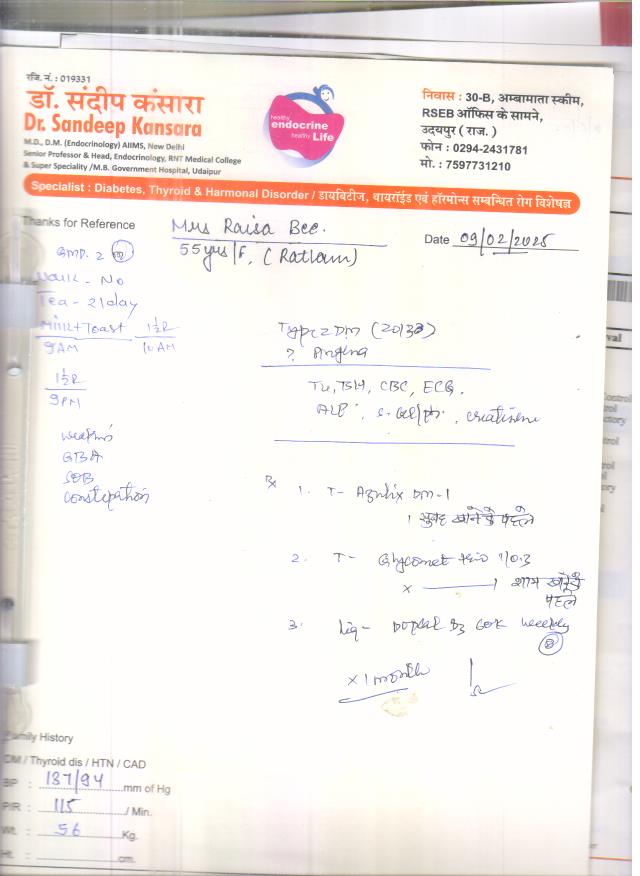 रजि. नं. : 019331
डॉ. संदीप कंसारा
Dr. Sandeep Kansara
M.D., D.M. (Endocrinology) AIIMS, New Delhi
Senior Professor & Head, Endocrinology, RNT Medical College
& Super Speciality /M.B. Government Hospital, Udaipur
healthy
endocrine
healthy Life
निवास : 30-B, अम्बामाता स्कीम,
RSEB ऑफिस के सामने,
उदयपुर ( राज. )
फोन : 0294-2431781
मो. : 7597731210
Specialist : Diabetes, Thyroid & Harmonal Disorder / डायबिटीज, थायरॉईड एवं हॉरमोन्स सम्बन्धित रोग विशेषज्ञ
Thanks for Reference
Mrs Raisa Bee.
55yrs/F, (Ratlam)
Date 09/02/2025
Walk - No
Tea - 2/day
Milk + Toast 1½R
9AM 10AM
1½R
9PM
GBA
SOB
Constipation
Type 2 DM
? Angina
TSH, CBC, ECG,
creatinine
Rx
1. T- Azulix DM-1
1 सुबह खाने के पहले
2. T- Glycomet 1/0.3
x 1 शाम खाने के
पहले
3. Liq- D3 60K weekly
x 1 month
Family History
DM / Thyroid dis / HTN / CAD
BP : 137/94 mm of Hg
P/R : 115 / Min.
Wt. : 56 Kg.
Ht. : cm.